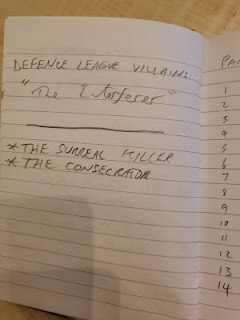 DEFENCE LEAGUE VILLAIN:
"The Interferer"
*THE SURREAL KILLER
*THE CONSECRATOR
1
2
3
4
5
6
7
8
9
10
11
12
13
14